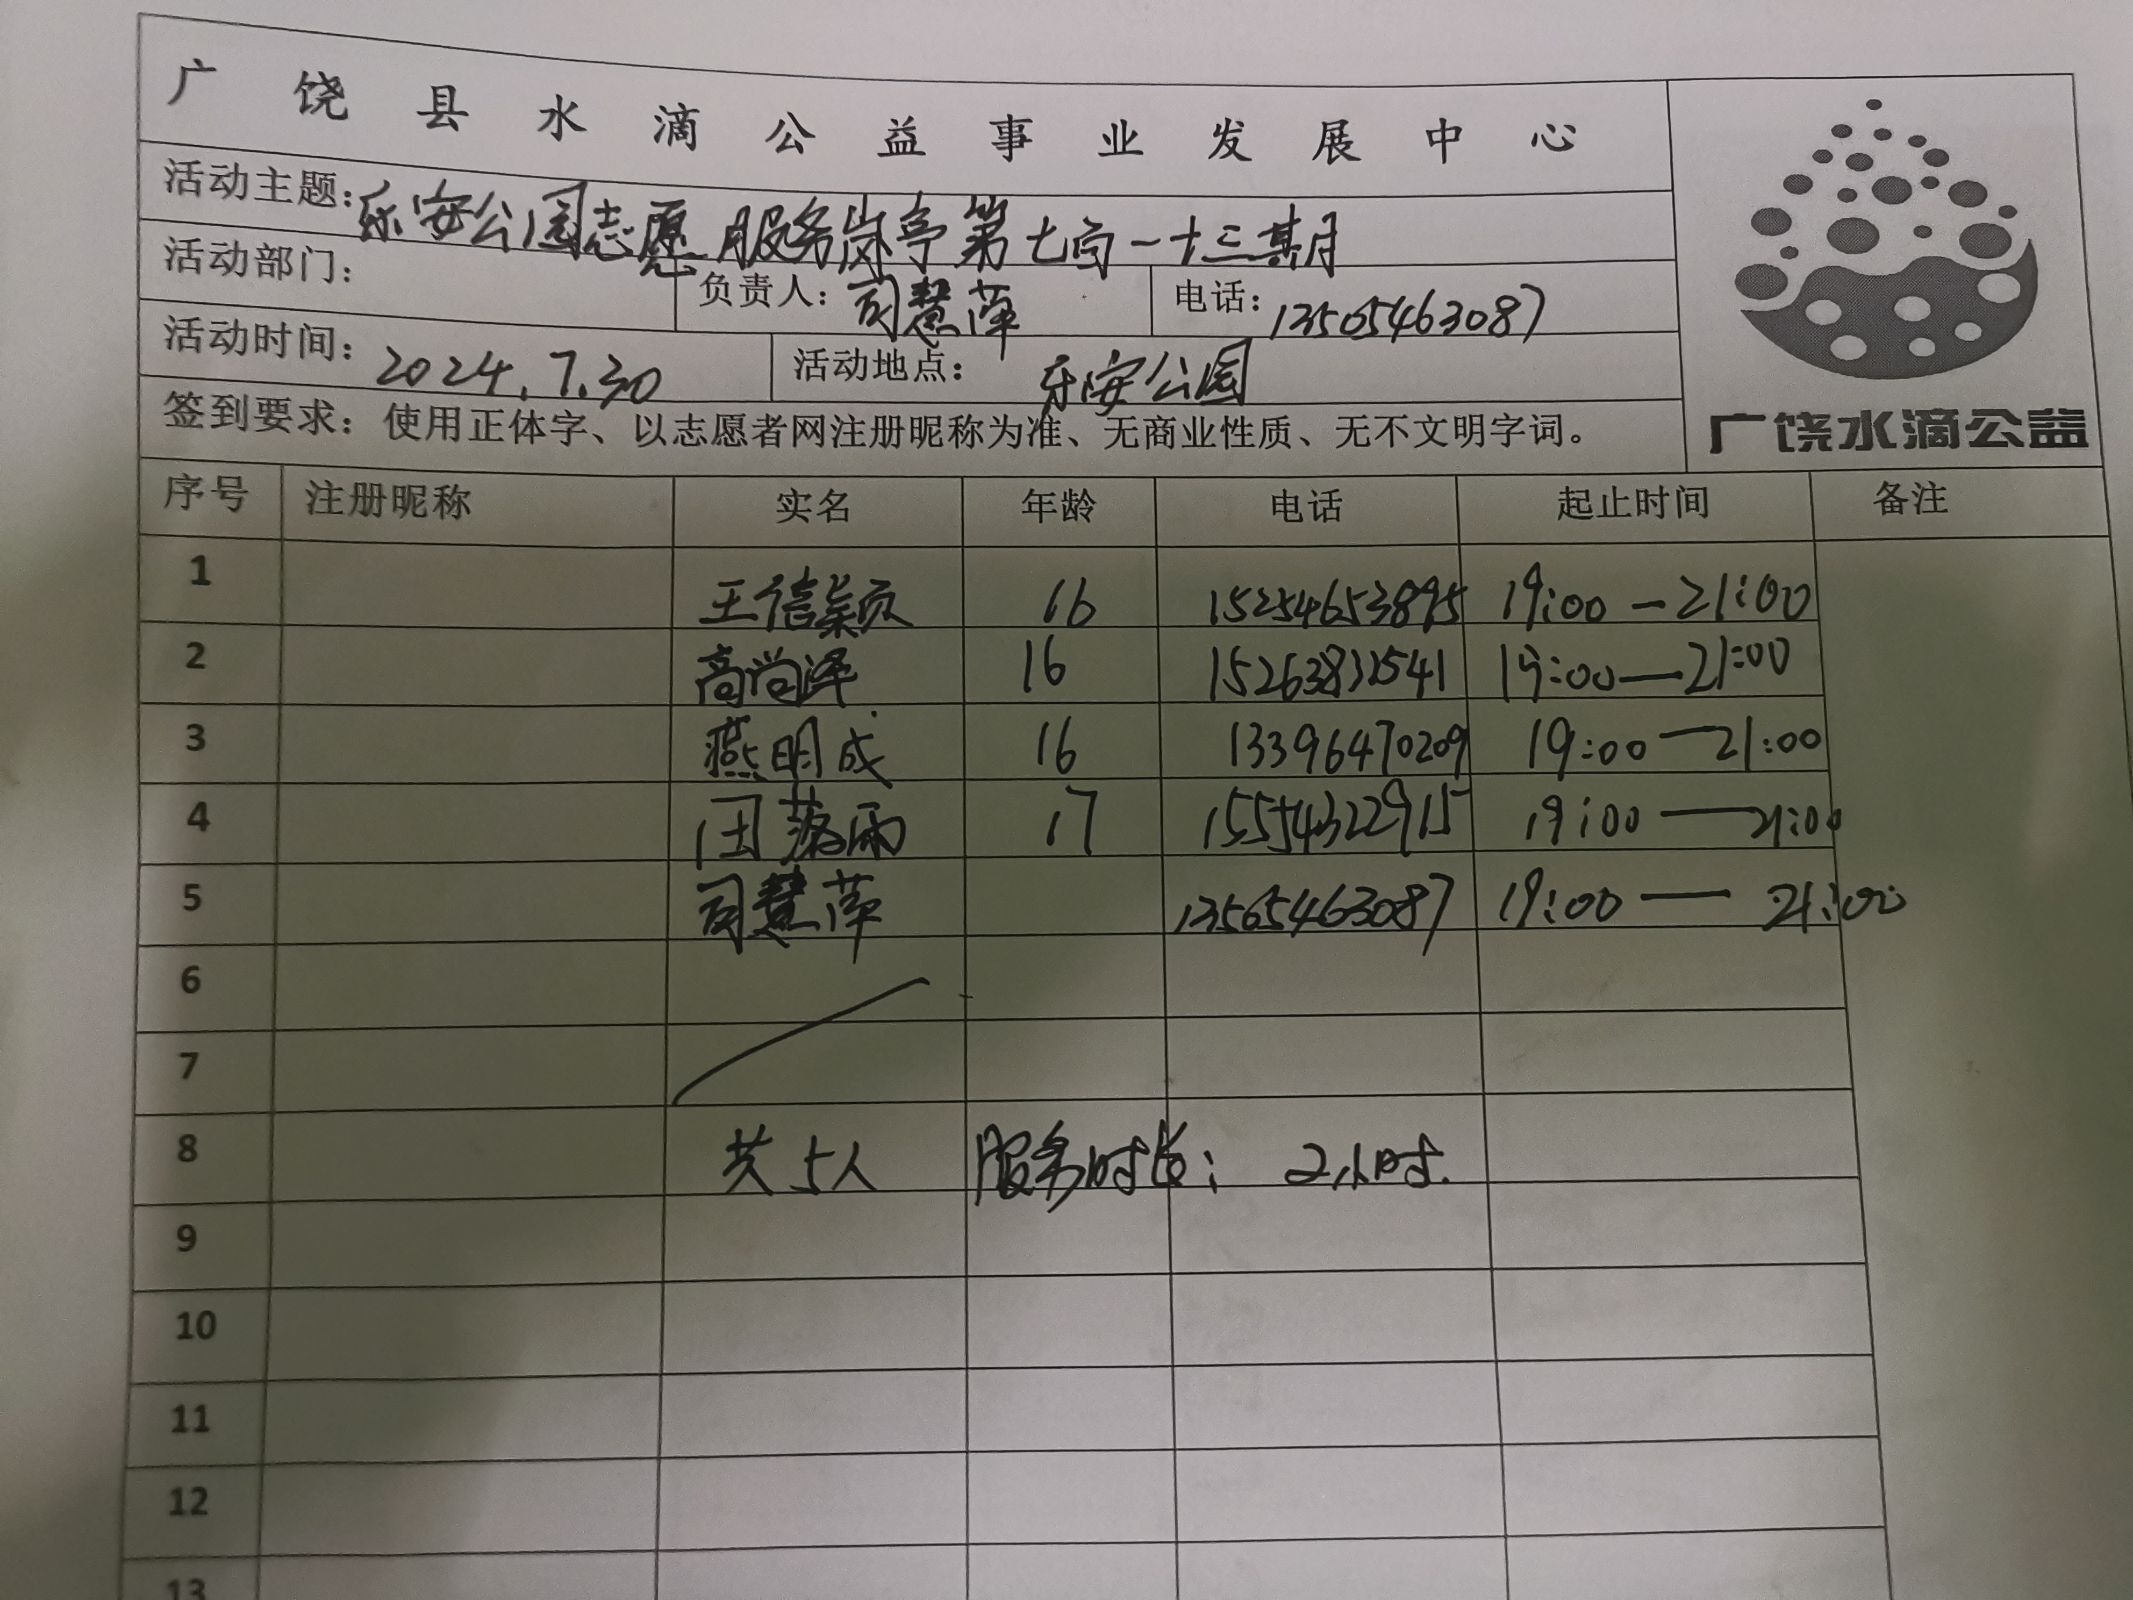 广饶县水滴公益事业发展中心
活动主题：乐安公园志愿服务岗亭第七百一十三期
活动部门：
负责人：司慧萍 电话：13505463087
活动时间：2024.7.30 活动地点：乐安公园
签到要求：使用正体字、以志愿者网注册昵称为准、无商业性质、无不文明字词。
广饶水滴公益
序号 注册昵称 实名 年龄 电话 起止时间 备注
1 王信颖 16 15254653895 19:00—21:00
2 高尚泽 16 19:00—21:00
3 燕明成 16 13396470209 19:00—21:00
4 落雨 17 15554322915 19:00—21:00
5 司慧萍 13505463087 19:00—21:00
6
7
8 共5人 服务时长：2小时.
9
10
11
12
13